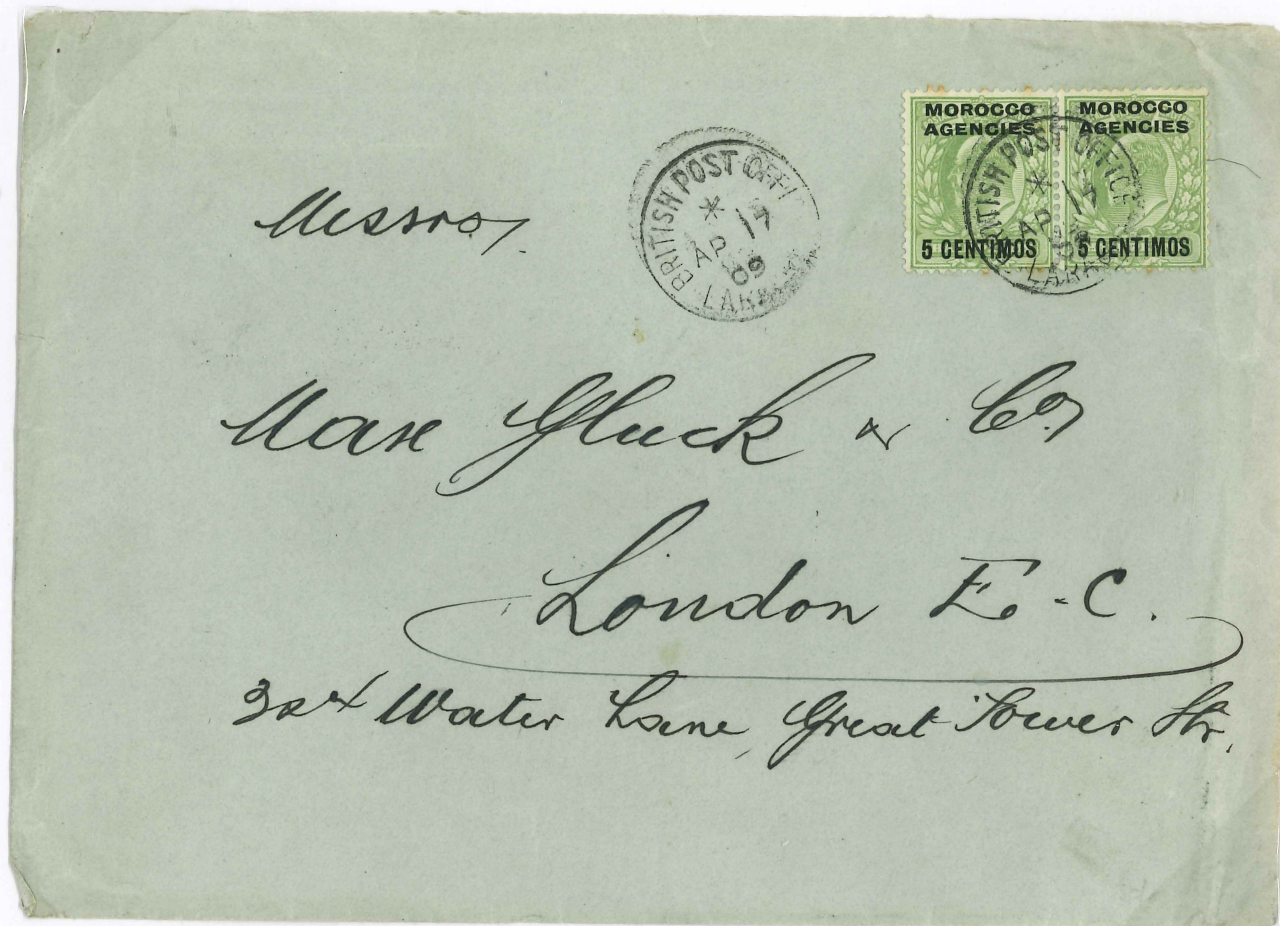 MOROCCO AGENCIES
5 CENTIMOS
MOROCCO AGENCIES
5 CENTIMOS
BRITISH POST OFFI
* AP 17 09
BRITISH POST OFFICE
* AP 17
Messrs.
Max Gluck & Co,
London E.C.
Water Lane, Great Tower Str.